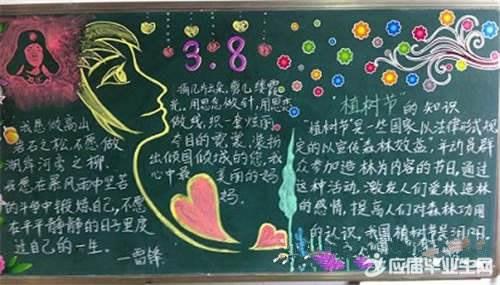 3.8
我愿做高山
岩石之松,不愿做
湖岸河旁之柳.
我愿在暴风雨中艰苦
的斗争中锻炼自己,不愿
在平平静静的日子里度
过自己的一生.
—雷锋
摘几片云朵,剪几缕霞
光,用思念做针,用思恋
做线,织一套
今日的霓裳,装扮
出倾国倾城的您,我
心中最 美丽的妈
妈.
"植树节"的知识
"植树节"是一些国家以法律形式规
定的以宣传森林效益,并动员群
众参加造林为内容的节日,通过
这种活动,激发人们爱林造林
的感情,提高人们对森林功用
的认识,我国植树节是
应届毕业生网